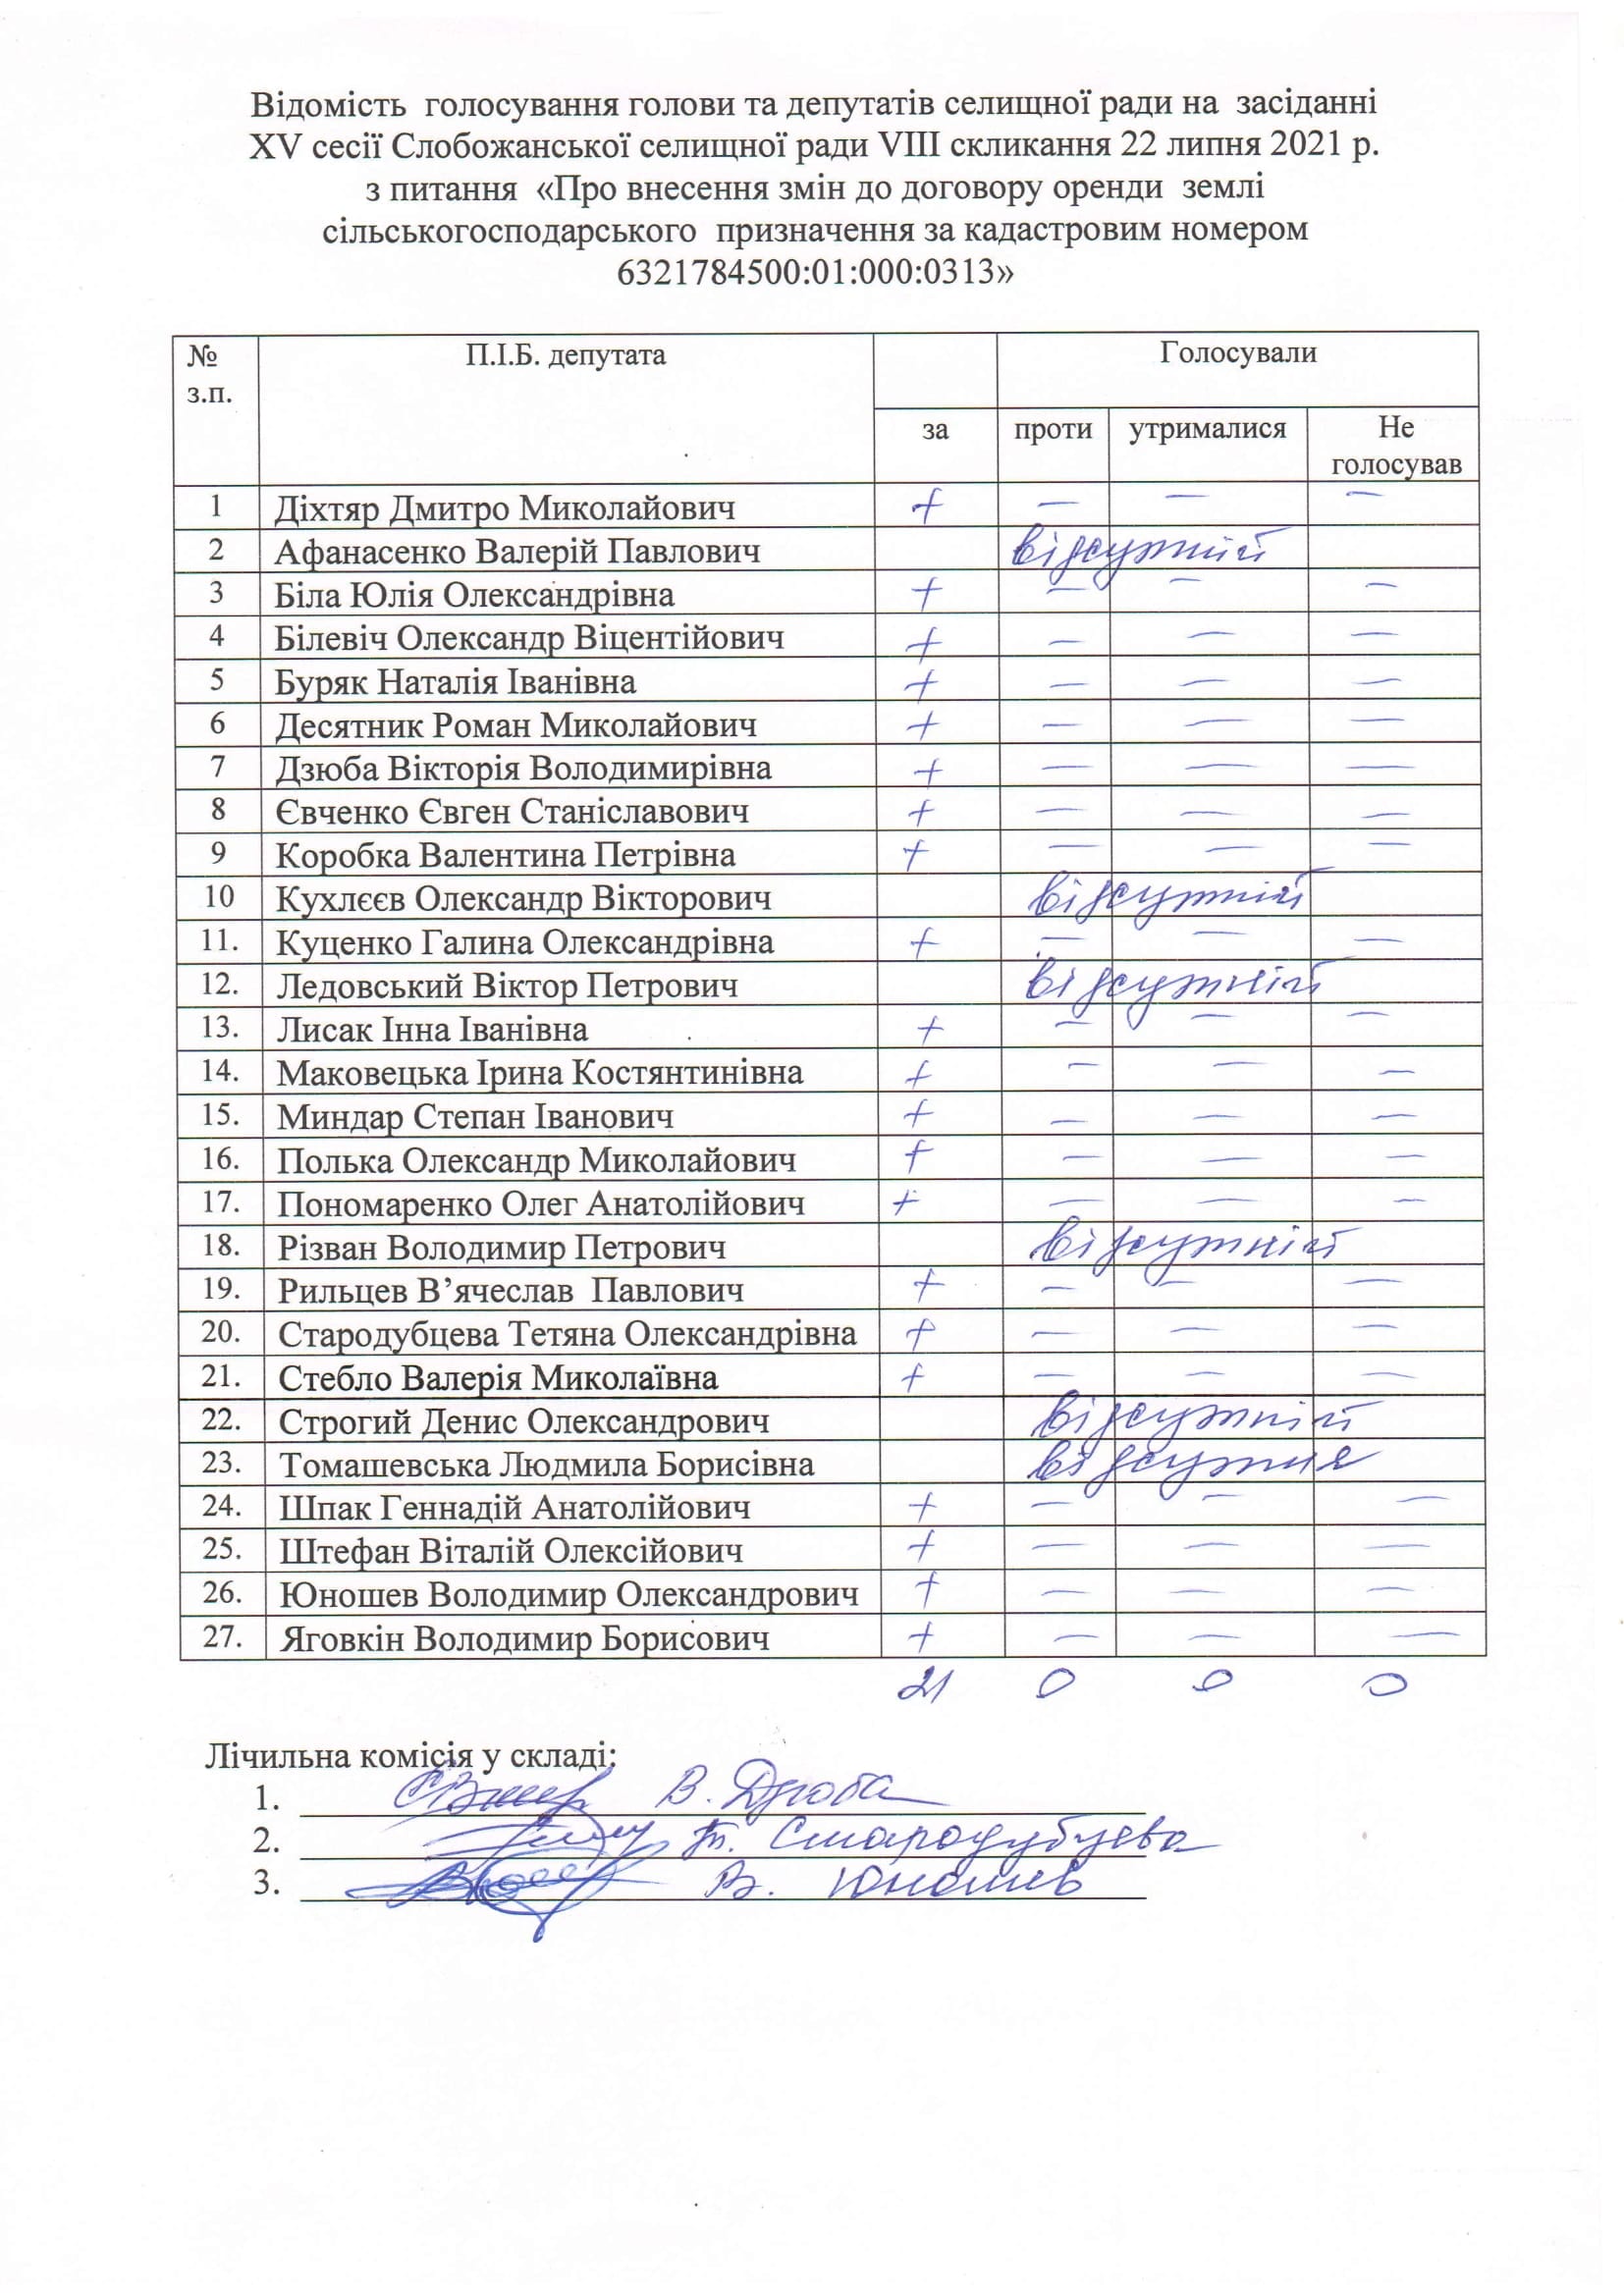 Відомість голосування голови та депутатів селищної ради на засіданні
XV сесії Слобожанської селищної ради VIII скликання 22 липня 2021 р.
з питання «Про внесення змін до договору оренди землі
сільськогосподарського призначення за кадастровим номером
6321784500:01:000:0313»
№ П.І.Б. депутата Голосували
з.п.
за проти утрималися Не
голосував
1 Діхтяр Дмитро Миколайович + — — —
2 Афанасенко Валерій Павлович відсутній
3 Біла Юлія Олександрівна + — — —
4 Білевіч Олександр Віцентійович + — — —
5 Буряк Наталія Іванівна + — — —
6 Десятник Роман Миколайович + — — —
7 Дзюба Вікторія Володимирівна + — — —
8 Євченко Євген Станіславович + — — —
9 Коробка Валентина Петрівна + — — —
10 Кухлєєв Олександр Вікторович відсутній
11. Куценко Галина Олександрівна + — — —
12. Ледовський Віктор Петрович відсутній
13. Лисак Інна Іванівна + — — —
14. Маковецька Ірина Костянтинівна + — — —
15. Миндар Степан Іванович + — — —
16. Полька Олександр Миколайович + — — —
17. Пономаренко Олег Анатолійович + — — —
18. Різван Володимир Петрович відсутній
19. Рильцев В’ячеслав Павлович + — — —
20. Стародубцева Тетяна Олександрівна + — — —
21. Стебло Валерія Миколаївна + — — —
22. Строгий Денис Олександрович відсутній
23. Томашевська Людмила Борисівна відсутня
24. Шпак Геннадій Анатолійович + — — —
25. Штефан Віталій Олексійович + — — —
26. Юношев Володимир Олександрович + — — —
27. Яговкін Володимир Борисович + — — —
21 0 0 0
Лічильна комісія у складі:
1. В. Дзюба
2. Т. Стародубцева
3. В. Юношев